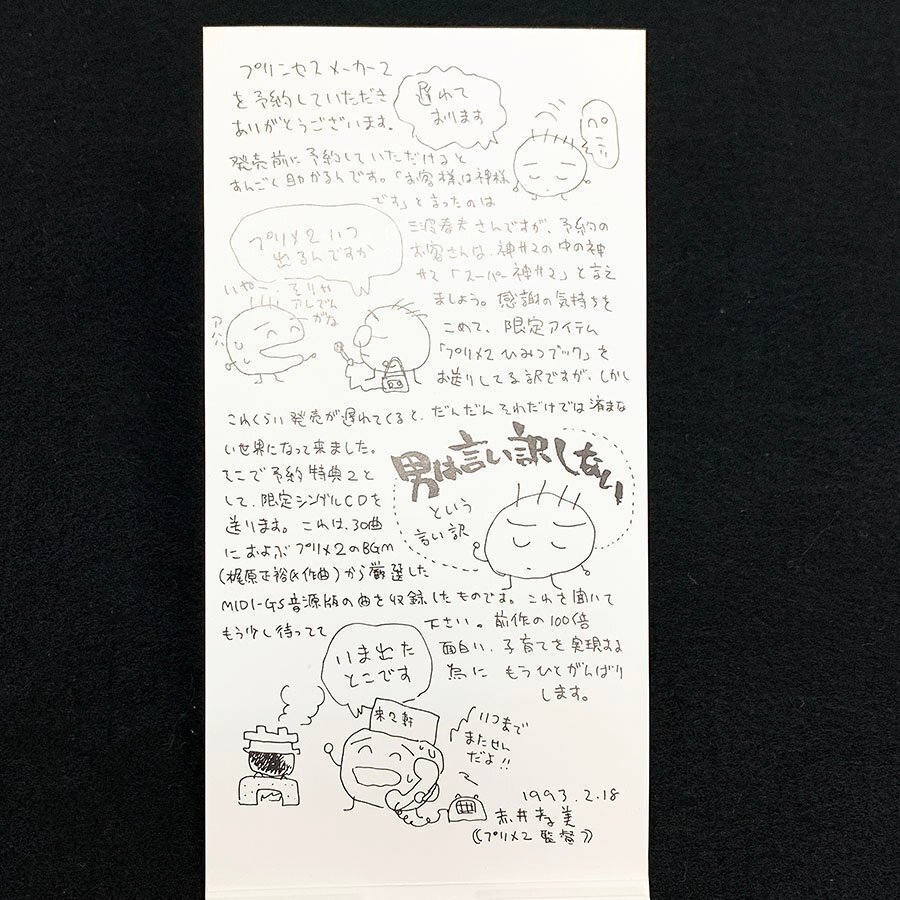 プリンセスメーカー2
を予約していただき
ありがとうございます。
遅れて
おります
ペこり
発売前に予約していただけると
すんごく助かるんです。「お客様は神様
です」と言ったのは
三波春夫さんですが、予約の
お客さんは、神サマの中の神
サマ「スーパー神サマ」と言え
ましょう。感謝の気持ちを
こめて、限定アイテム
「プリメ2ひみつブック」を
お送りしてる訳ですが、しかし
プリメ2いつ
出るんですか
いやー、そりゃ
アレでん
がな
これくらい発売が遅れてくると、だんだんそれだけでは済まな
い世界になって来ました。
そこで予約特典2と
して、限定シングルCDを
送ります。これは、30曲
におよぶプリメ2のBGM
(梶原正裕氏作曲)から厳選した
MIDI-GS音源版の曲を収録したものです。これを聞いて
もう少し待ってて
下さい。前作の100倍
面白い、子育てを実現する
為に もうひとがんばり
します。
男は言い訳しない
という
言い訳
いま出た
とこです
来々軒
いつまで
またせん
だよ!!
1993.2.18
赤井孝美
(プリメ2監督)